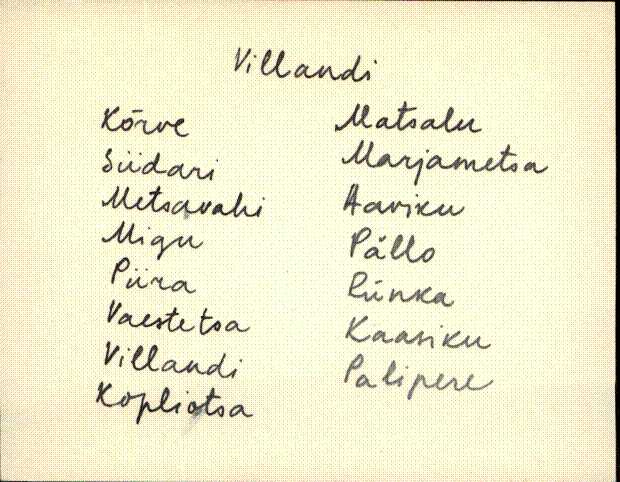 Villandi
Kõrve
Siidari
Metsavahi
Migu
Piira
Vaestetsa
Villandi
Kopliotsa
Matsalu
Marjametsa
Aaviku
Pällo
Künka
Kaasiku
Palipere